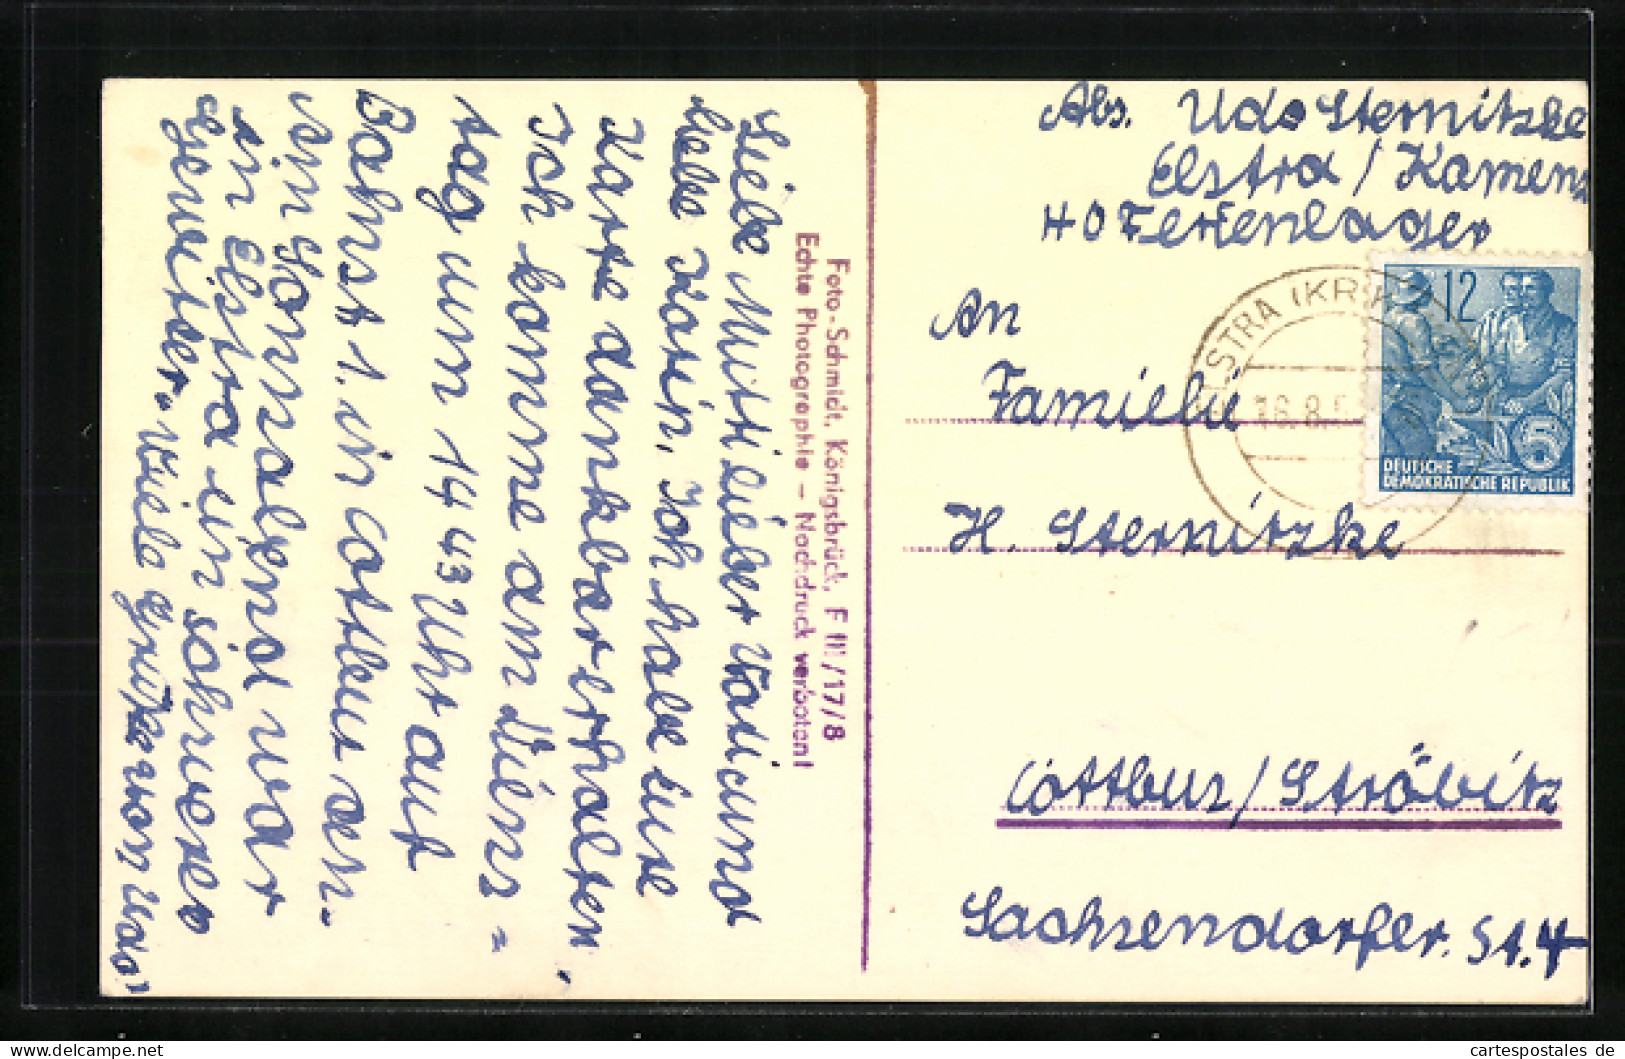 Liebe Mutti, lieber Vati und
liebe Karin. Ich habe eure
Karte dankbar erhalten,
Ich komme am Diens=
tag um 14 43 Uhr auf
Bahnst 1. in Cottbus an.
am Sonnabend war
in Elstra ein schweres
Gewitter. Viele Grüße von Udo!
Foto-Schmidt, Königsbrück, F III/17/8
Echte Photographie – Nachdruck verboten!
Abs. Udo Sternitzke
Elstra / Kamenz
HO Ferienlager
An
Familie
H. Sternitzke
Cottbus/Ströbitz
Sachsendorfer. St. 4
ELSTRA (KR. KAMENZ)
16.8.5
12
5
DEUTSCHE
DEMOKRATISCHE REPUBLIK
cartespostales de